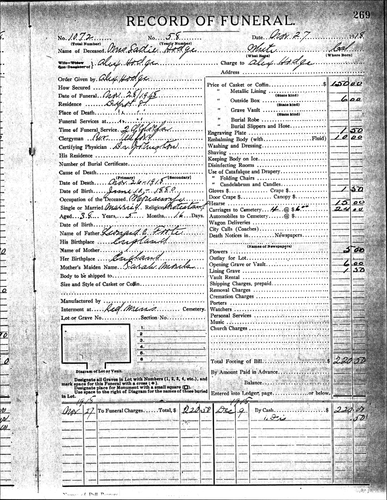 RECORD OF FUNERAL.
269
No. 1072 No. 58 Date, Nov. 27 1918
(Total Number) (Yearly Number)
Name of Deceased, Mrs Sadie Hodge White
(What Race) (Where Born)
Wife of Alex Hodge Charge to Alex Hodge
Address
Order Given by Alex Hodge
How Secured
Date of Funeral Nov 28/1918
Residence
Place of Death
Funeral Services at
Time of Funeral Service
Clergyman
Certifying Physician
His Residence
Number of Burial Certificate
Cause of Death
(Primary) (Secondary)
Date of Death Nov 26 1918
Date of Birth June 10 1880
Occupation of the Deceased Housewife
Single or Married Married Religion
Aged 38 Years 5 Months 16 Days
Name of Father
His Birthplace England
Name of Mother
Her Birthplace England
Mother's Maiden Name Sarah
Body to be shipped to
Size and Style of Casket or Coffin
Manufactured by
Interment at Red Cemetery.
Lot or Grave No. Section No.
1.
2.
3.
4.
5.
6.
Diagram of Lot or Vault
Designate all Graves in Lot with Numbers (1, 2, 3, 4, etc.), and mark space for this Funeral with a cross (+).
Designate place for Monument with a small square (□).
Use space to the right of Diagram for the names of those buried in Lot.
Price of Casket or Coffin $150.00
(State Kind)
" Metallic Lining
(State Kind)
" Outside Box 6.00
(State Kind)
" Burial Robe
(State Kind)
" Burial Slippers and Hose
Engraving Plate
Embalming Body (with Fluid) 10.00
Washing and Dressing
Shaving
Keeping Body on Ice
Disinfecting Rooms
Use of Catafalque and Drapery
" Folding Chairs
" Candelabrum and Candles
Gloves $ Crape $ 1.50
Door Crape $ Canopy $
Hearse 15.00
Carriages to Cemetery 4 @ $6 24.00
Automobiles to Cemetery @ $
Wagon Deliveries
City Calls (Coaches)
Death Notices in Newspapers
(Names of Newspapers)
Flowers 5.00
Outlay for Lot
Opening Grave or Vault 6.00
Lining Grave 1.50
Vault Rental
Shipping Charges, prepaid
Removal Charges
Cremation Charges
Porters
Watchers
Personal Services
Music
Church Charges
Total Footing of Bill $ 220.50
By Amount Paid in Advance
Balance
Entered into Ledger, page or below.
Nov 27 To Funeral Charges Total, $ 220.50 Dec 9 By Cash 220.00
" Dis 50